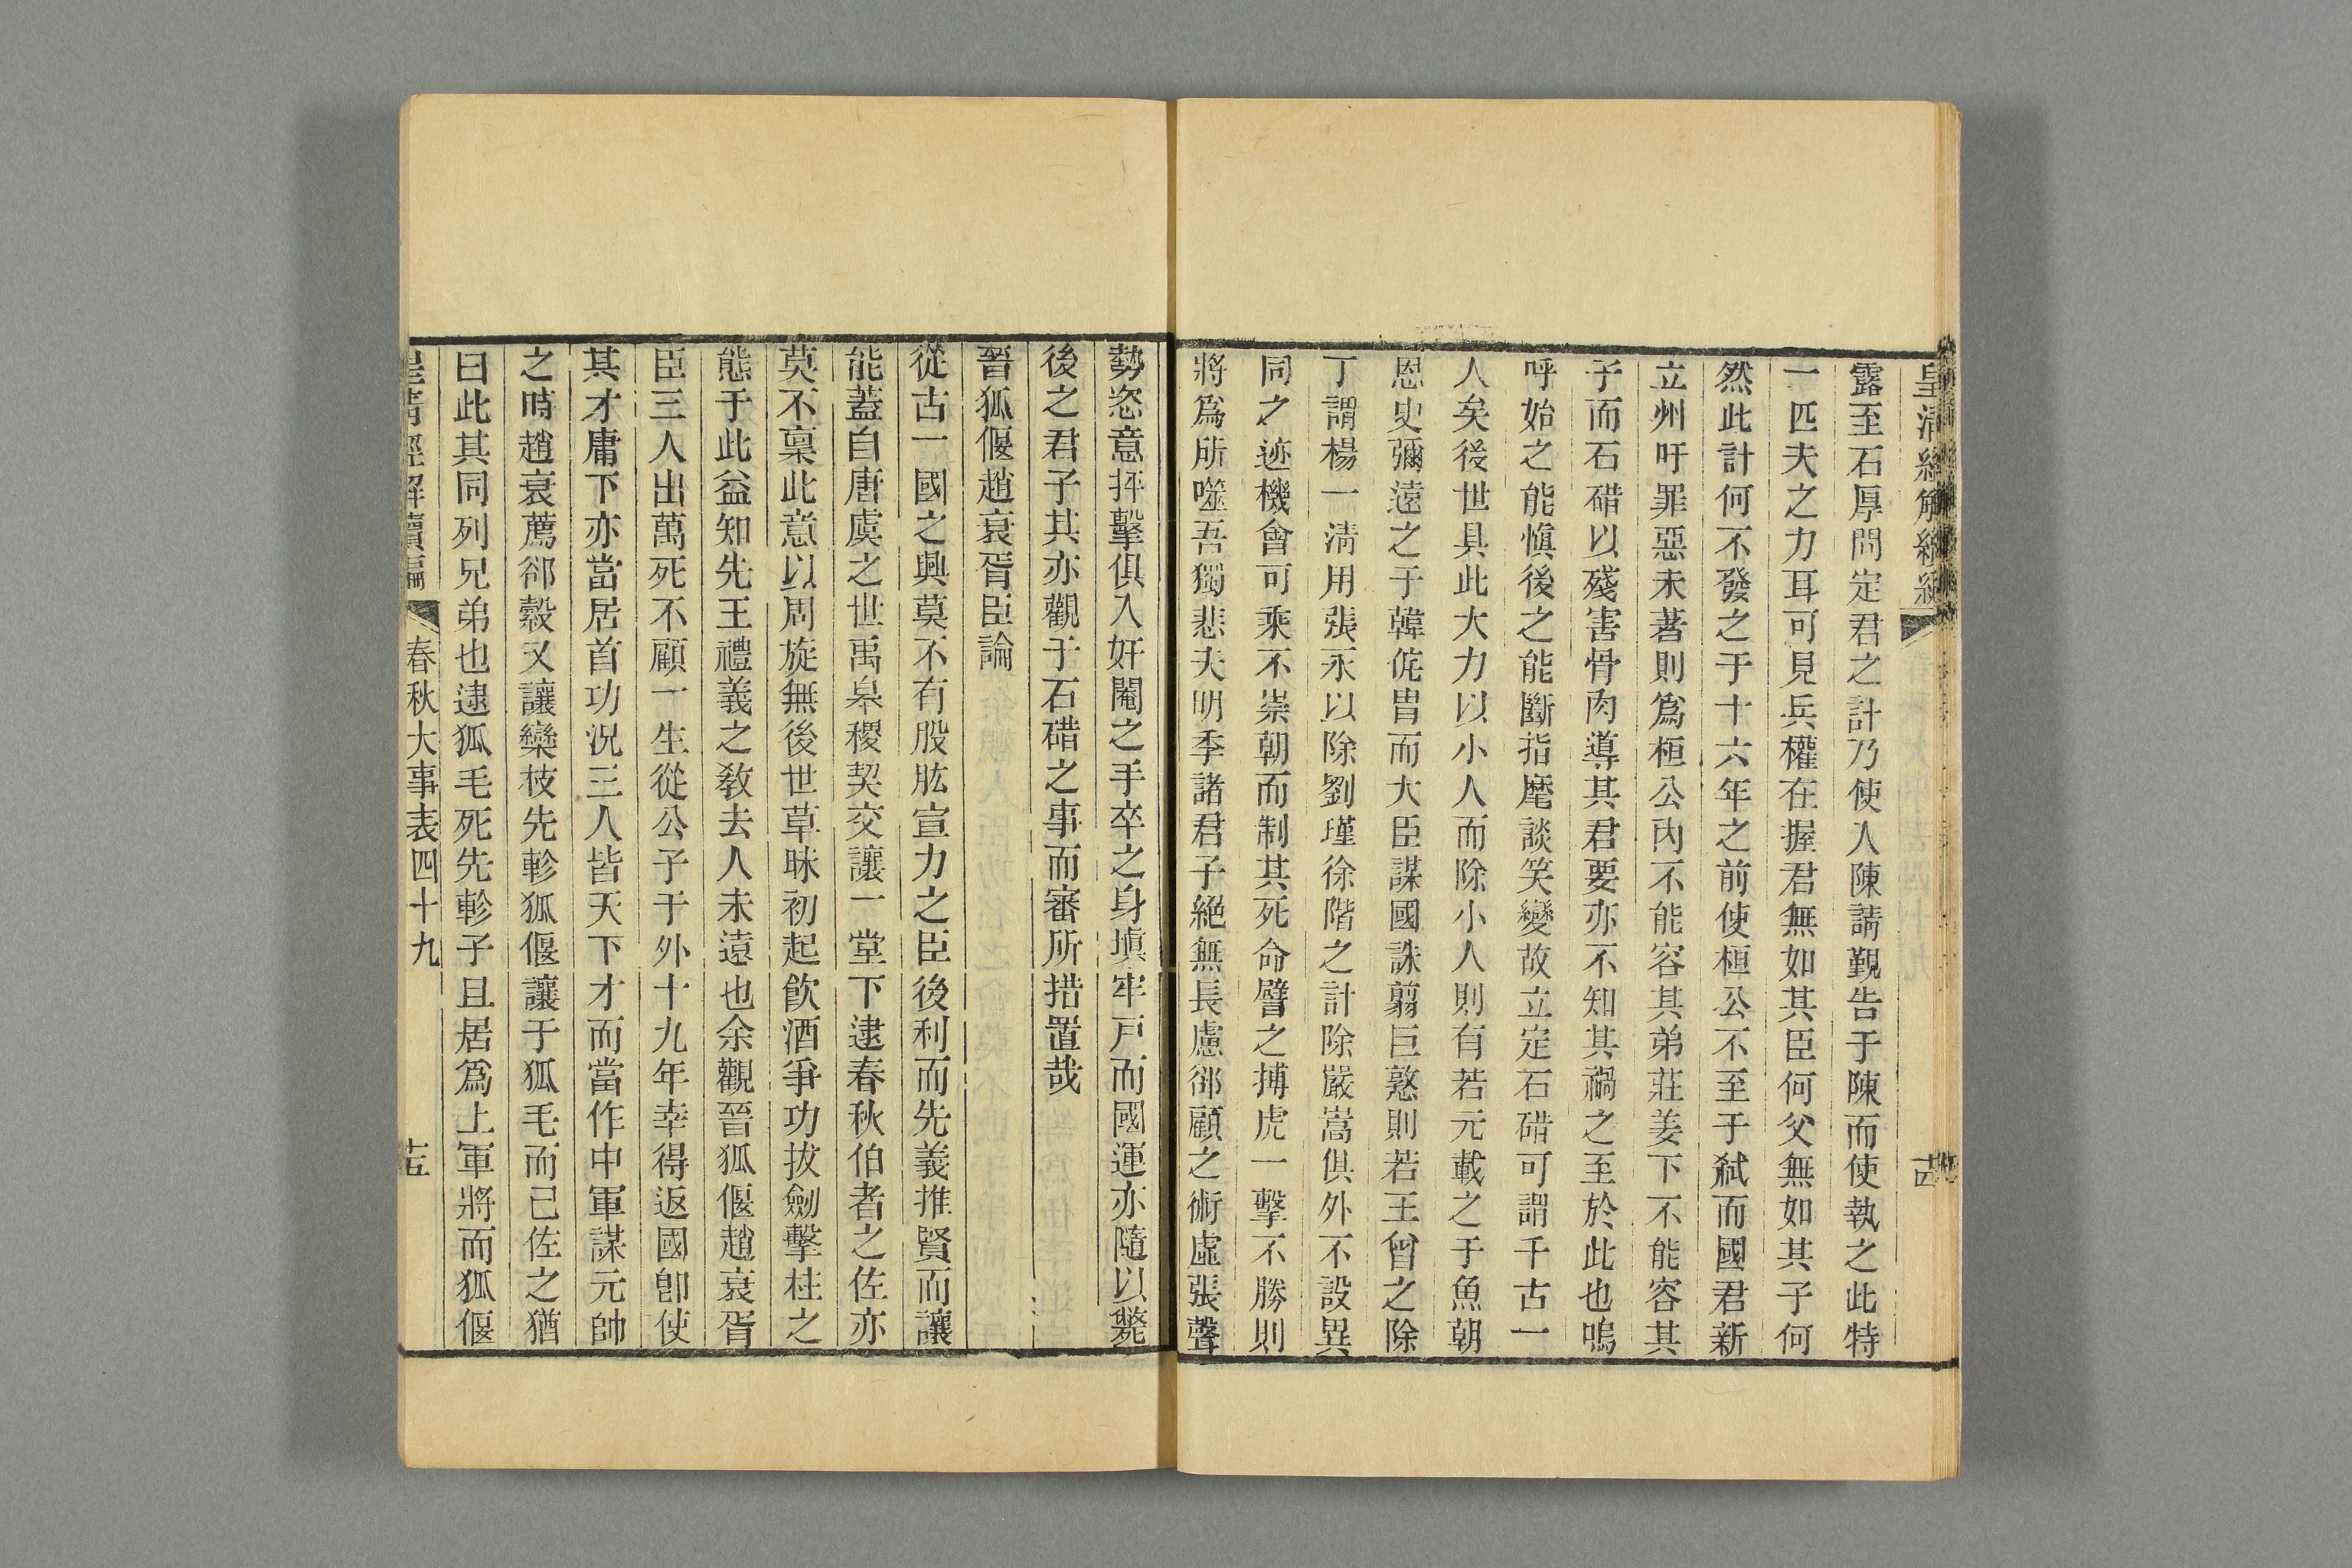 皇清經解續編
古
露至石厚問定君之計乃使人陳請覲告于陳而使執之此特
一匹夫之力耳可見兵權在握君無如其臣何父無如其子何
然此計何不發之于十六年之前使桓公不至于弒而國君新
立州吁罪惡未著則爲桓公內不能容其弟莊姜下不能容其
子而石碏以殘害骨肉導其君要亦不知其禍之至於此也嗚
呼始之能慎後之能斷指麾談笑變故立定石碏可謂千古一
人矣後世具此大力以小人而除小人則有若元載之于魚朝
恩史彌遠之于韓侂胄而大臣謀國誅翦巨憝則若王曾之除
丁謂楊一淸用張永以除劉瑾徐階之計除嚴嵩俱外不設異
同之迹機會可乘不崇朝而制其死命譬之搏虎一擊不勝則
將爲所噬吾獨悲夫明季諸君子絕無長慮郤顧之術虛張聲
勢恣意抨擊俱入奸閹之手卒之身塡牢戸而國運亦隨以斃
後之君子其亦觀于石碏之事而審所措置哉
晉狐偃趙衰胥臣論
從古一國之興莫不有股肱宣力之臣後利而先義推賢而讓
能蓋自唐虞之世禹皋稷契交讓一堂下逮春秋伯者之佐亦
莫不稟此意以周旋無後世草昧初起飮酒爭功拔劒擊柱之
態于此益知先王禮義之敎去人未遠也余觀晉狐偃趙衰胥
臣三人出萬死不顧一生從公子于外十九年幸得返國卽使
其才庸下亦當居首功況三人皆天下才而當作中軍謀元帥
之時趙衰薦郤縠又讓欒枝先軫狐偃讓于狐毛而已佐之猶
曰此其同列兄弟也逮狐毛死先軫子且居爲上軍將而狐偃
皇清經解續編
春秋大事表四十九
十五